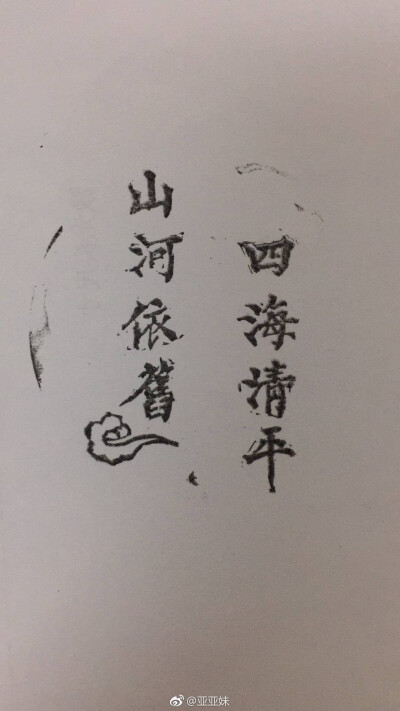 四海清平
山河依舊
@亚亚妹